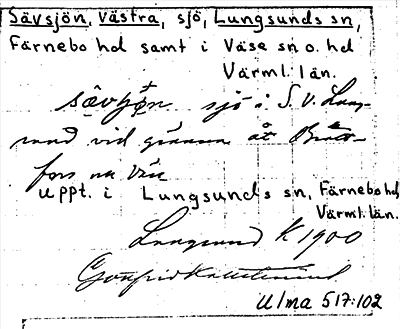 Sävsjön, västra, sjö, Lungsunds sn,
Färnebo hd samt i Väse sn o. hd
Värml. län.
sjö i S. V. Lung-
sund vid gränsen åt Bratt-
fors
Uppt. i Lungsunds sn, Färnebo hd,
Värml. län.
Lungsund 1900
Ulma 517:102